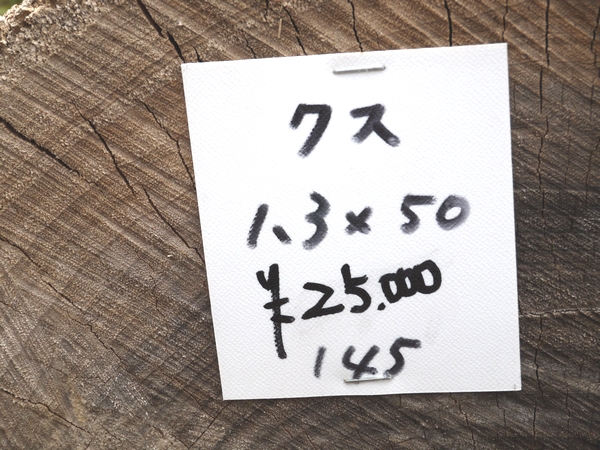 クス
1.3×50
¥25.000
145